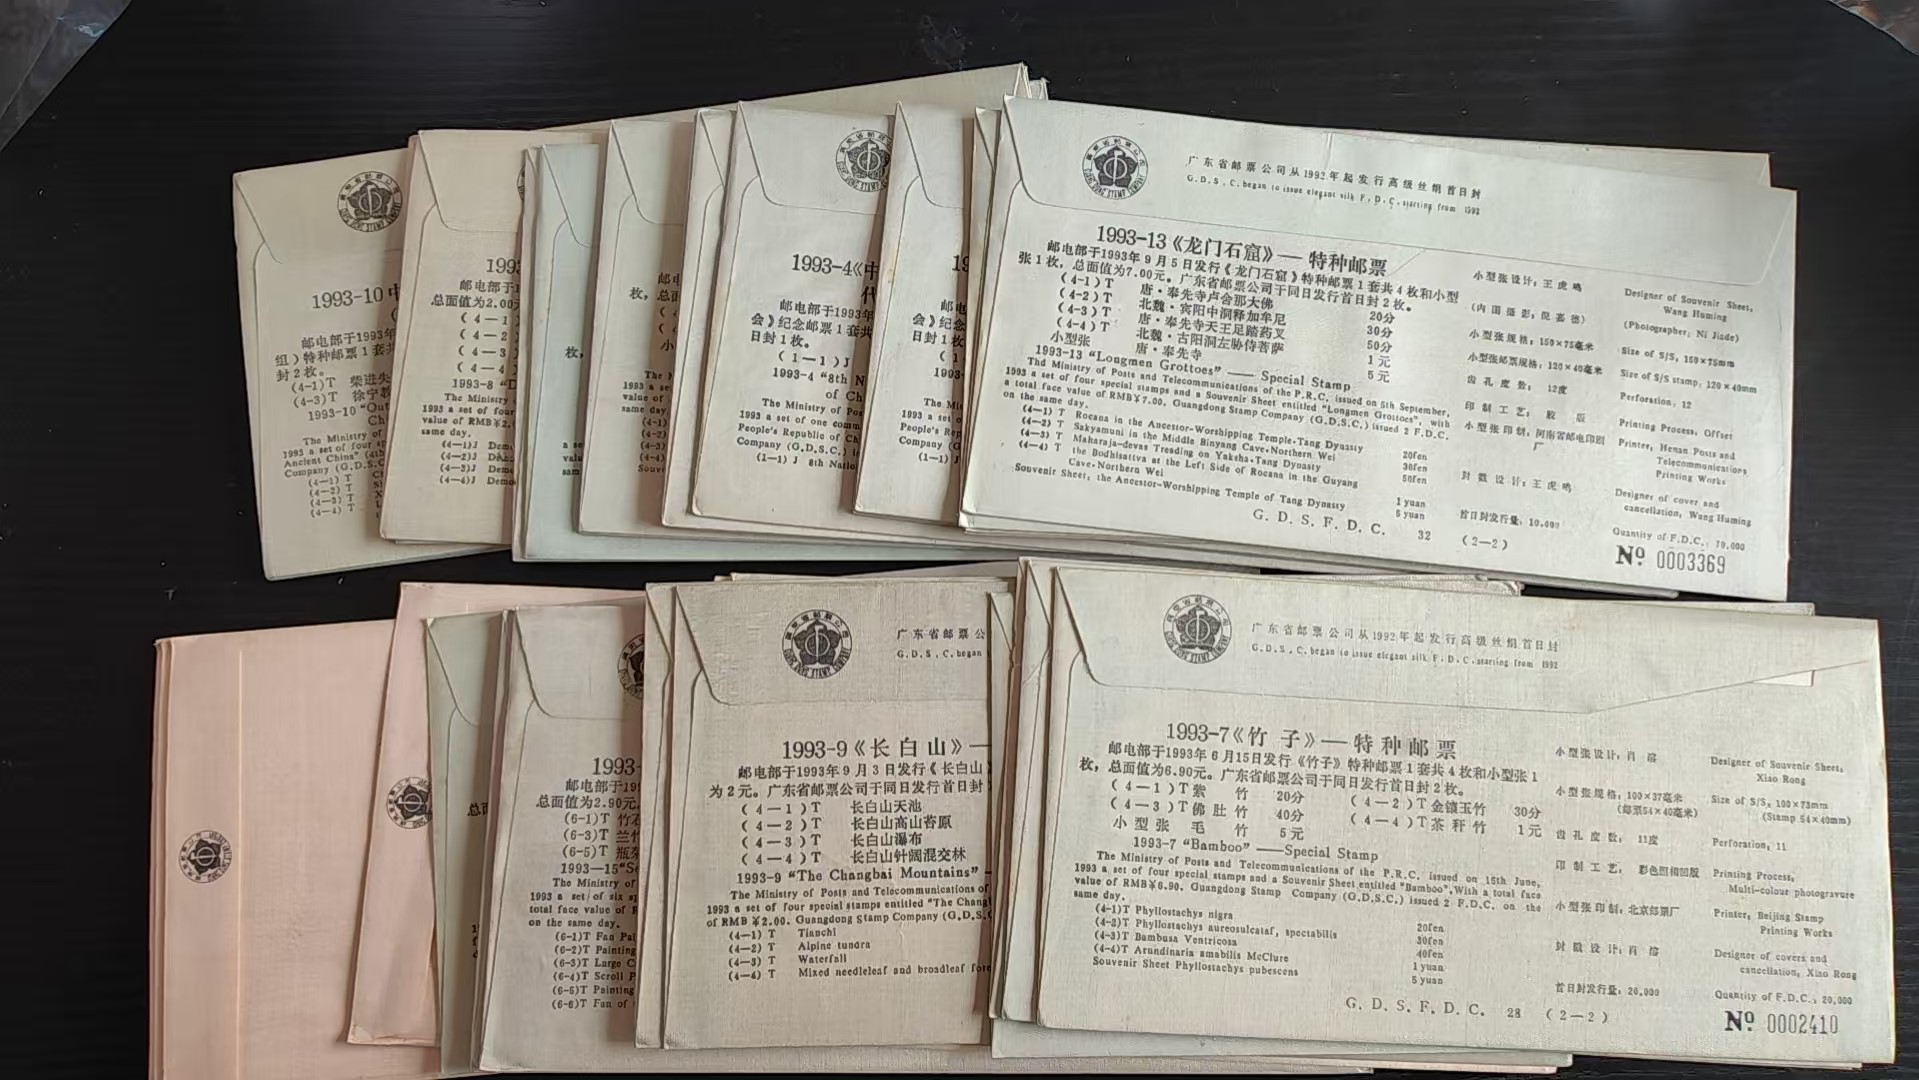 1993-10
邮电部于1993年
组）特种邮票1套共
封2枚。
(4-1)T 柴进失
(4-3)T 徐宁教
1993-10 "Out
The Ministry of
1993 a set of four
Ancient China" (4th
Company (G.D.S.C
(4-1) T
(4-2) T
(4-3) T
(4-4) T
邮电部于
总面值为2.00元
(4-1)
(4-2)
(4-3)
(4-4)
1993-8 "D
The Ministry
1993 a set of four
value of RMB¥2.
same day.
(4-1)J Demo
(4-2)J
(4-3)J Demo
(4-4)J Demo
枚，
1993-4《中
代
邮电部于1993年
会》纪念邮票1套共
日封1枚。
(1-1)J
1993-4 "8th N
of Ch
The Ministry of Pos
1993 a set of one comm
People's Republic of Ch
Company (G.D.S.C.)
(1-1) J 8th Natio
广东省邮票公司从1992年起发行高级丝绢首日封
G.D.S.C. began to issue elegant silk F.D.C. starting from 1992
1993-13《龙门石窟》—特种邮票
邮电部于1993年9月5日发行《龙门石窟》特种邮票1套共4枚和小型
张1枚，总面值为7.00元。广东省邮票公司于同日发行首日封2枚。
(4-1)T 唐·奉先寺卢舍那大佛 20分
(4-2)T 北魏·宾阳中洞释加牟尼 30分
(4-3)T 唐·奉先寺天王足踏药叉 50分
(4-4)T 北魏·古阳洞左胁侍菩萨 1元
小型张 唐·奉先寺 5元
1993-13 "Longmen Grottoes" — Special Stamp
Thd Ministry of Posts and Telecommunications of the P.R.C. issued on 5th September,
1993 a set of four special stamps and a Souvenir Sheet entitled "Longmen Grottoes", with
a total face value of RMB¥7.00. Guangdong Stamp Company (G.D.S.C.) issued 2 F.D.C.
on the same day.
(4-1) T Rocana in the Ancestor-Worshipping Temple·Tang Dynasty 20fen
(4-2) T Sakyamuni in the Middle Binyang Cave·Northern Wei 30fen
(4-3) T Maharaja-devas Treading on Yaksha·Tang Dynasty 50fen
(4-4) T the Bodhisattva at the Left Side of Rocana in the Guyang
Cave·Northern Wei 1 yuan
Souvenir Sheet, the Ancestor-Worshipping Temple of Tang Dynasty 5 yuan
G. D. S. F. D. C. 32 (2-2)
小型张设计：王虎鸣
(内图摄影：倪嘉德)
小型张规格：150×75毫米
小型张邮票规格：120×40毫米
齿孔度数：12度
印制工艺：胶版
小型张印制：河南省邮电印刷
厂
封戳设计：王虎鸣
首日封发行量：10,000
Designer of Souvenir Sheet,
Wang Huming
(Photographer: Ni Jiade)
Size of S/S, 150×75mm
Size of S/S stamp, 120×40mm
Perforation, 12
Printing Process, Offset
Printer, Henan Posts and
Telecommunications
Printing Works
Designer of cover and
cancellation, Wang Huming
Quantity of F.D.C.: 10,000
Nº 0003369
总面值为2.90元
(6-1)T 竹石
(6-3)T 兰竹
(6-5)T 瓶菊
1993-15"Se
The Ministry of
1993 a set of six s
total face value of
on the same day.
(6-1)T Fan Pai
(6-2)T Painting
(6-3)T Large C
(6-4)T Scroll P
(6-5)T Painting
(6-6)T Fan of
广东省邮票公
G.D.S.C. began
1993-9《长白山》—
邮电部于1993年9月3日发行《长白山
为2元。广东省邮票公司于同日发行首日封
(4-1)T 长白山天池
(4-2)T 长白山高山苔原
(4-3)T 长白山瀑布
(4-4)T 长白山针阔混交林
1993-9 "The Changbai Mountains" —
The Ministry of Posts and Telecommunications of
1993 a set of four special stamps entitled "The Chang
of RMB ¥2.00. Guangdong Stamp Company (G.D.S.C
(4-1) T Tianchi
(4-2) T Alpine tundra
(4-3) T Waterfall
(4-4) T Mixed needleleaf and broadleaf fore
广东省邮票公司从1992年起发行高级丝绢首日封
G.D.S.C. began to issue elegant silk F.D.C. starting from 1992
1993-7《竹子》—特种邮票
邮电部于1993年6月15日发行《竹子》特种邮票1套共4枚和小型张1
枚，总面值6.90元。广东省邮票公司于同日发行首日封2枚。
(4-1)T紫竹 20分 (4-2)T金镶玉竹 30分
(4-3)T佛肚竹 40分 (4-4)T茶秆竹 1元
小型张 毛竹 5元
1993-7 "Bamboo" —Special Stamp
The Ministry of Posts and Telecommunications of the P.R.C. issued on 15th June,
1993 a set of four special stamps and a Souvenir Sheet entitled "Bamboo".With a total face
value of RMB¥6.90. Guangdong Stamp Company (G.D.S.C.) issued 2 F.D.C. on the
same day.
(4-1)T Phyllostachys nigra 20fen
(4-2)T Phyllostachys aureosulcataf, spectabilis 30fen
(4-3)T Bambusa Ventricosa 40fen
(4-4)T Arundinaria amabilis McClure 1 yuan
Souvenir Sheet Phyllostachys pubescens 5 yuan
G. D. S. F. D. C. 28 (2-2)
小型张设计：肖溶
小型张规格：100×37毫米
(邮票54×40毫米)
齿孔度数：11度
印制工艺：彩色照相凹版
小型张印制：北京邮票厂
封戳设计：肖溶
首日封发行量：20,000
Designer of Souvenir Sheet,
Xiao Rong
Size of S/S, 100×73mm
(Stamp 54×40mm)
Perforation, 11
Printing Process,
Multi-colour photogravure
Printer, Beijing Stamp
Printing Works
Designer of covers and
cancellation, Xiao Rong
Quantity of F.D.C.: 20,000
Nº 0002410